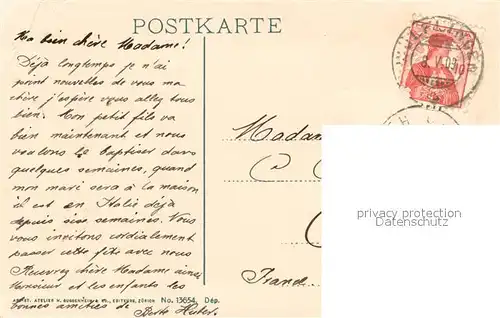 POSTKARTE
Ma bien chère Madame!
Déjà longtemps je n'ai
point nouvelles de vous ma
chère j'espère vous allez tous
bien. Mon petit fils va
bien maintenant et nous
voulons le Baptiser dans
quelques semaines, quand
mon mari sera à la maison
il est en Italie déjà
depuis six semaines. Nous
vous invitons cordialement
passer cette fête avec nous
Recevez chère Madame ainsi
Monsieur et les enfants les
bonnes amitiés de Berta Huber.
Madame
France
privacy protection
Datenschutz
ART. INST. ATELIER H. GUGGENHEIM & CO., EDITEURS, ZÜRICH No. 13654 Dép.